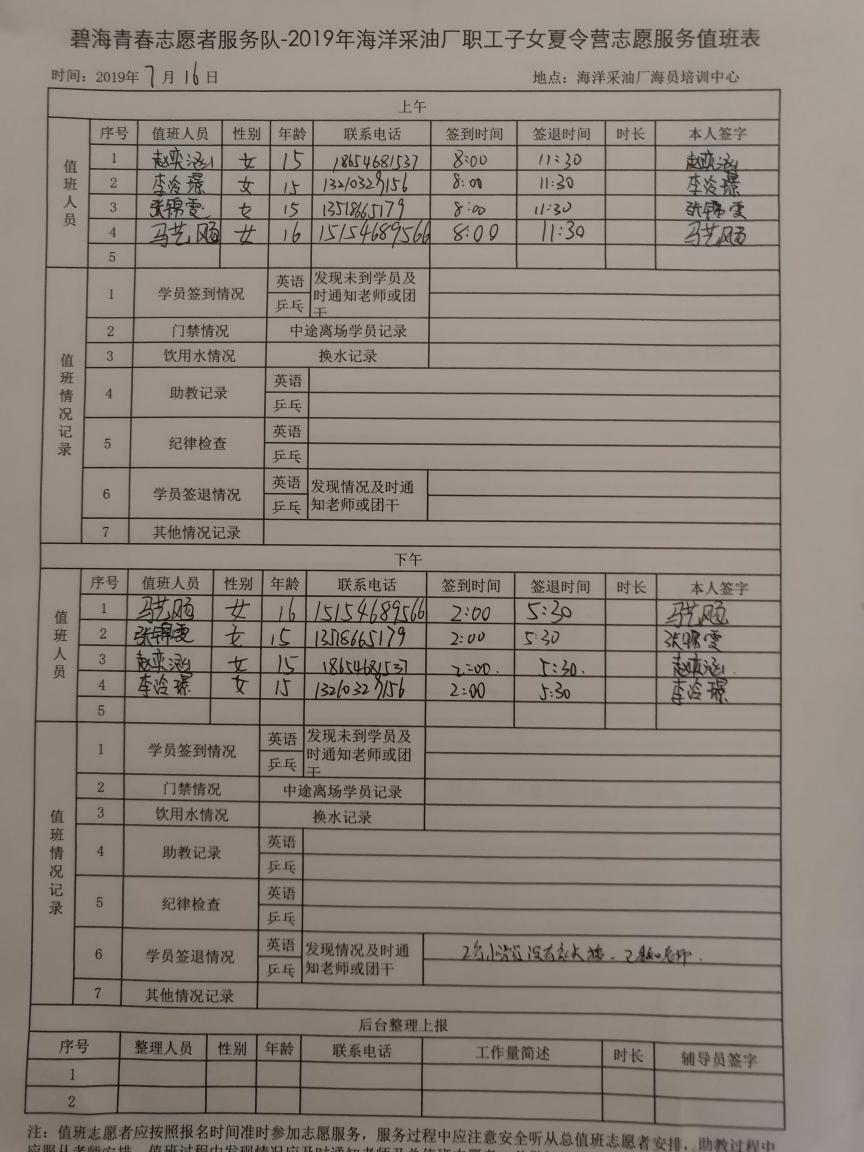 碧海青春志愿者服务队-2019年海洋采油厂职工子女夏令营志愿服务值班表
时间：2019年7月16日 地点：海洋采油厂海员培训中心
上午
值班人员
序号 值班人员 性别 年龄 联系电话 签到时间 签退时间 时长 本人签字
1 赵奕涵 女 15 18654681537 8:00 11:30 赵奕涵
2 李泠璟 女 15 8:00 11:30 李泠璟
3 张锦雯 女 15 13518665179 8:00 11:30 张锦雯
4 马艺飏 女 16 15154689566 8:00 11:30 马艺飏
5
值班情况记录
1 学员签到情况 英语 乒乓 发现未到学员及时通知老师或团干
2 门禁情况 中途离场学员记录
3 饮用水情况 换水记录
4 助教记录 英语 乒乓
5 纪律检查 英语 乒乓
6 学员签退情况 英语 乒乓 发现情况及时通知老师或团干
7 其他情况记录
下午
值班人员
序号 值班人员 性别 年龄 联系电话 签到时间 签退时间 时长 本人签字
1 马艺飏 女 16 15154689566 2:00 5:30 马艺飏
2 张锦雯 女 15 2:00 5:30 张锦雯
3 赵奕涵 女 15 18654681537 2:00. 5:30. 赵奕涵.
4 李泠璟 女 15 2:00 5:30 李泠璟
5
值班情况记录
1 学员签到情况 英语 乒乓 发现未到学员及时通知老师或团干
2 门禁情况 中途离场学员记录
3 饮用水情况 换水记录
4 助教记录 英语 乒乓
5 纪律检查 英语 乒乓
6 学员签退情况 英语 乒乓 发现情况及时通知老师或团干
7 其他情况记录
后台整理上报
序号 整理人员 性别 年龄 联系电话 工作量简述 时长 辅导员签字
1
2
注：值班志愿者应按照报名时间准时参加志愿服务，服务过程中应注意安全听从总值班志愿者安排，助教过程中